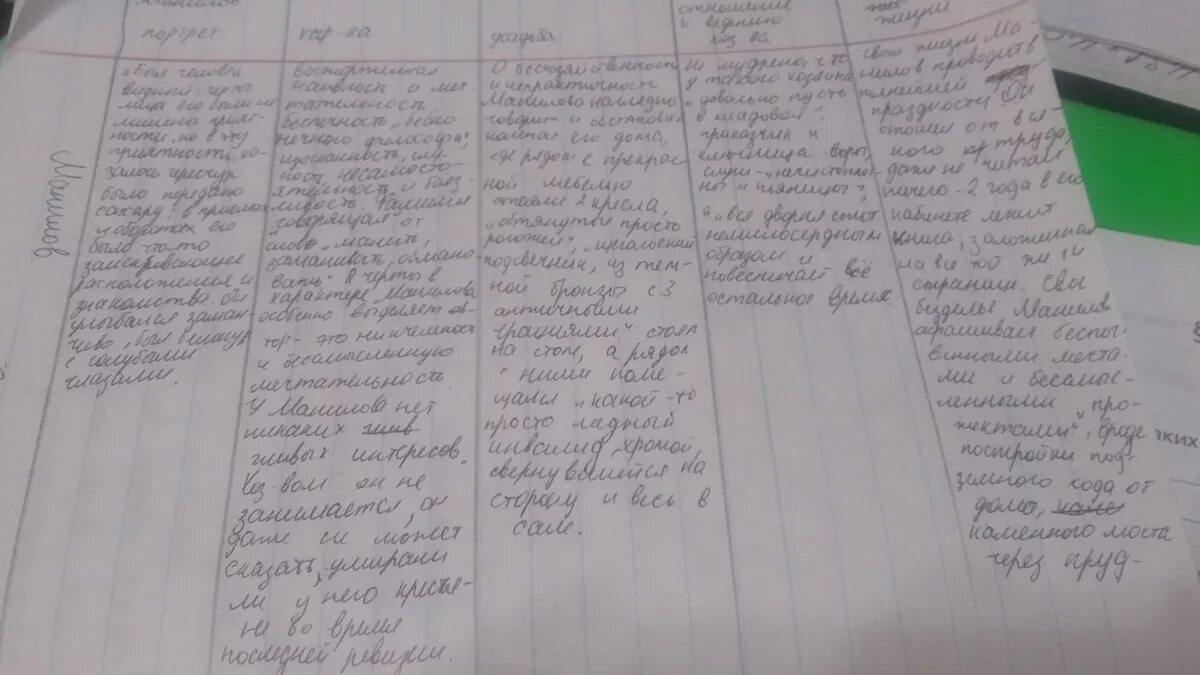 Манилов
портрет
хар-ка
усадьба
отношение
к ведению
хоз-ва
жизни
Манилов
„Был человек
видный; черты
лица его были не
лишены прият-
ности, но в эту
приятность, ка-
залось, чересчур
было передано
сахару; в приемах
и оборотах его
было что-то
заискивающее
расположения и
знакомства. Он
улыбался заман-
чиво, был белокур,
с голубыми
глазами.
Восторженная
наивность и меч-
тательность,
беспечность „беско-
нечного философа",
глупость, несамосто-
ятельность и бояз-
ливость. Фамилия
„говорящая" от
слова „манить,
заманивать, обманы-
вать". В черты в
характере Манилова
особенно выделяет ав-
тор - это никчемность
и бессмысленную
мечтательность.
У Манилова нет
никаких
живых интересов.
Хоз-вом он не
занимается, он
даже не может
сказать, умирали
ли у него крестья-
не во время
последней ревизии.
О бесхозяйственности
и непрактичности
Манилова наглядно
говорит и обстановка
комнат его дома,
где рядом с прекрас-
ной мебелью
стояли 2 кресла,
„обтянутые просто
рогожей", „щегольский
подсвечник, из тем-
ной бронзы с 3
античными
грациями" стоял
на стол, а рядом
с ними поме-
щался „какой-то
просто медный
инвалид, хромой,
свернувшийся на
сторону и весь в
сале.
не мудрено, что
у такого хозяина
„довольно пусто
в кладовой",
приказчик и
ключница воры,
слуги - „нечистоплот-
ны и пьяницы",
а „все дворня спит
немилосердным
образом и
повесничает всё
остальное время.
Свою жизнь Ма-
нилов проводит в
полнейшей
праздности. Он
отошел от вся-
кого труда,
даже не читает
ничего - 2 года в его
кабинете лежит
книга, заложенная
на все той же 14
странице. Свое
безделье Манилов
скрашивает беспоч-
венными мечта-
ми и бессмыс-
ленными „про-
жектами", вроде таких
постройки под-
земного хода от
дома,
каменного моста
через пруд-